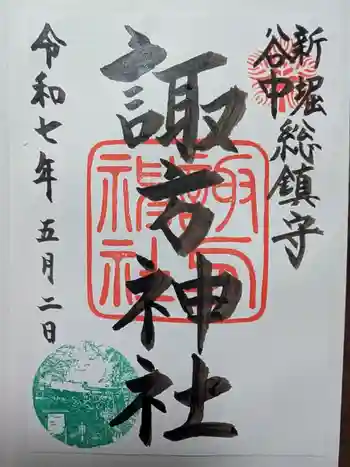 新堀
谷中
総鎮守
諏方神社
令和七年五月二日